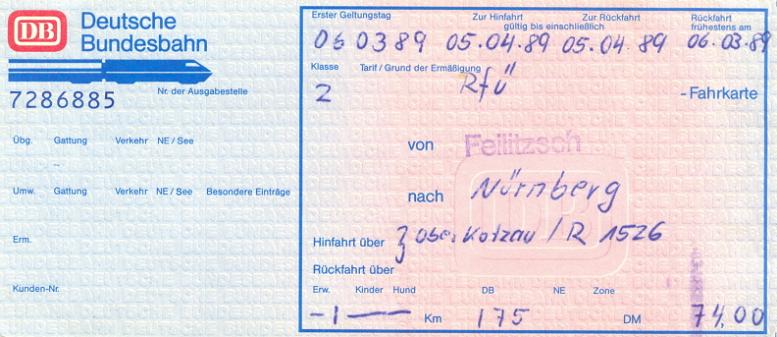 DB Deutsche Bundesbahn
7286885 Nr. der Ausgabestelle
Übg. Gattung Verkehr NE / See
Umw. Gattung Verkehr NE / See Besondere Einträge
Erm.
Kunden-Nr.
Erster Geltungstag Zur Hinfahrt Zur Rückfahrt Rückfahrt
gültig bis einschließlich frühestens am
06 03 89 05.04.89 05.04.89 06.03.89
Klasse Tarif / Grund der Ermäßigung
2 RfÜ - Fahrkarte
von Feilitzsch
nach Nürnberg
Hinfahrt über } Oberkotzau / R 1526
Rückfahrt über
Erw. Kinder Hund DB NE Zone
-1— Km 175 DM 74,00